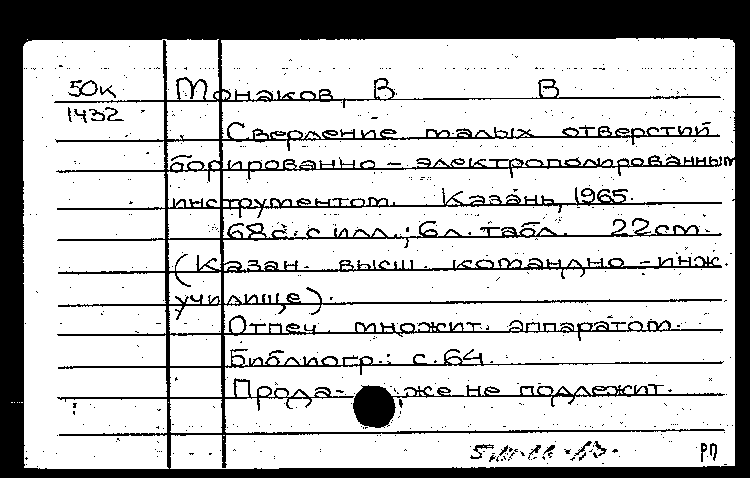 50к Монаков, В В
1432
Сверление малых отверстий
борированно - электрополированным
инструментом. Казань, 1965.
68с. с илл.; 6л. табл. 22см.
(Казан. высш. командно - инж.
училище).
Отпеч. множит. аппаратом.
Библиогр.: с. 64.
Прода- же не подлежит.
РП